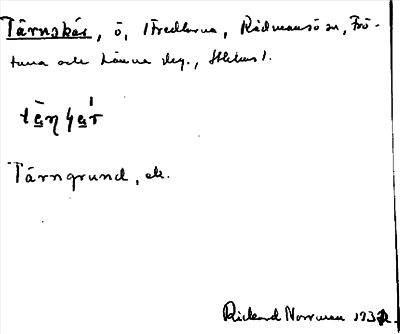 Tärnskär, ö, i Fredlarna, Rådmansö sn, Frö-
tuna och Länna skg., Sthlms l.
Tärngrund, ek.
Rickard Norrman 1932.